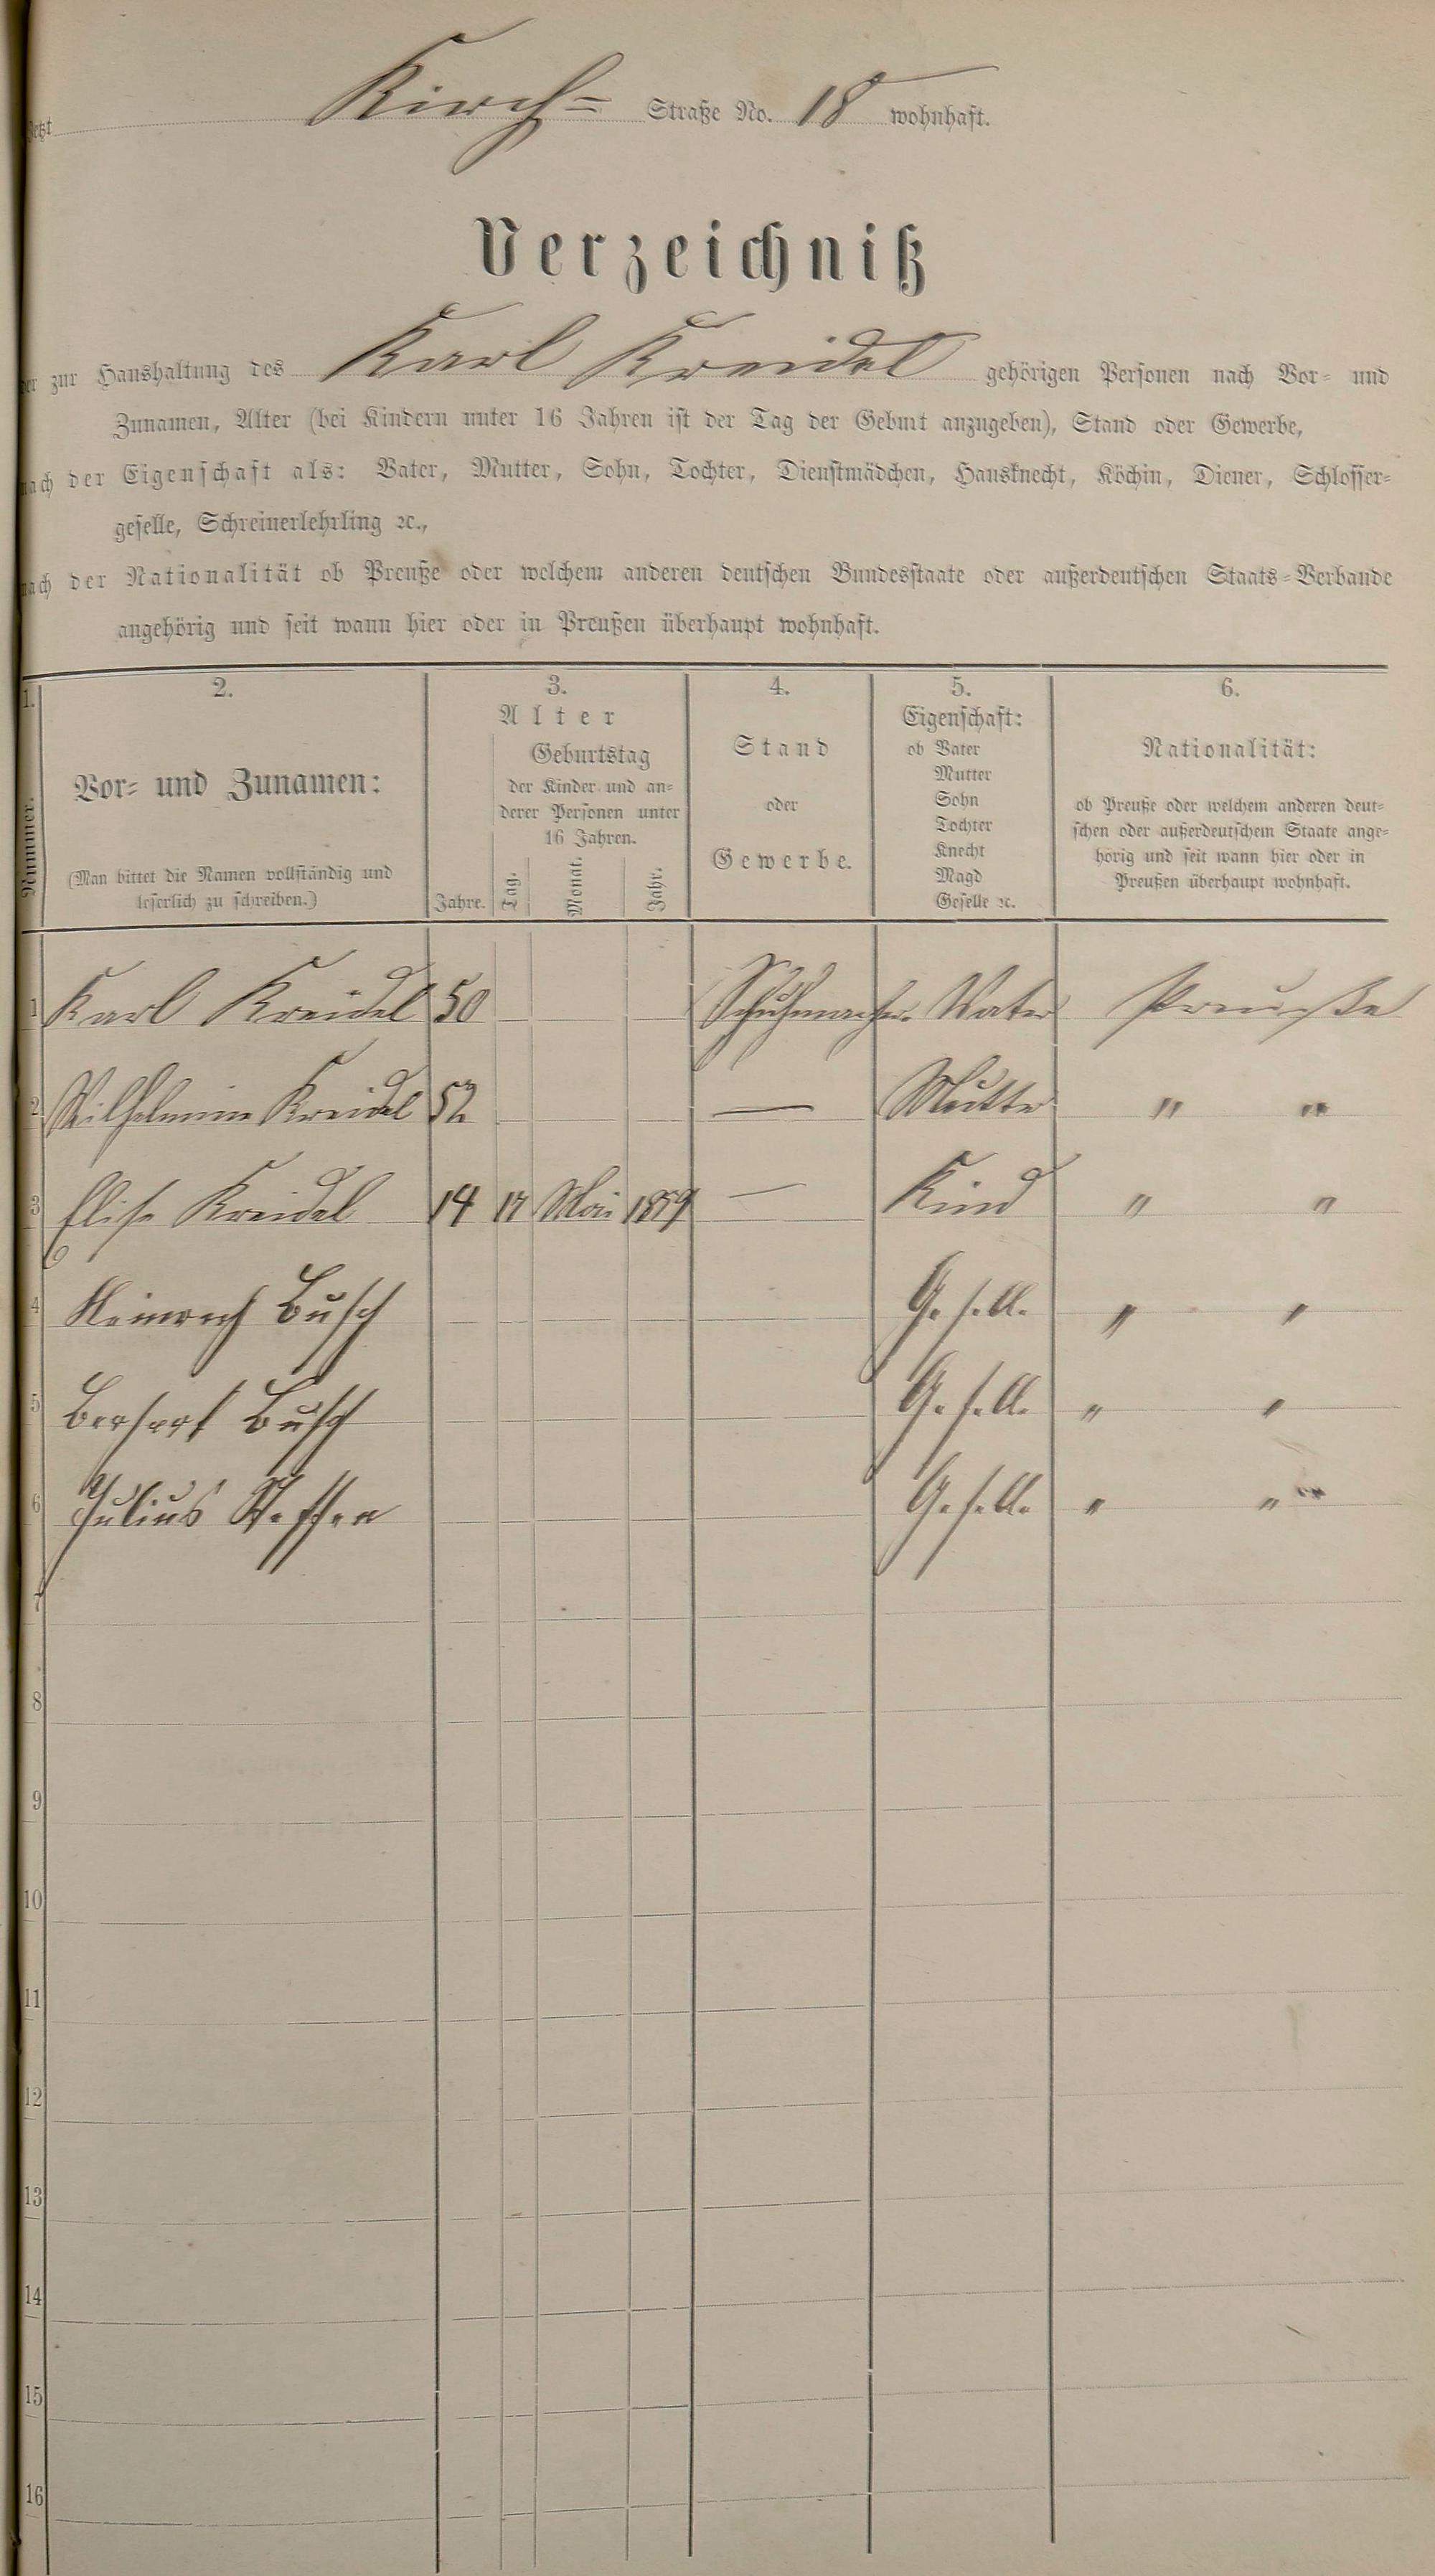 jetzt Kirch= Straße No. 18 wohnhaft.
Verzeichniß
der zur Haushaltung des Karl Kreidel gehörigen Personen nach Vor= und
Zunamen, Alter (bei Kindern unter 16 Jahren ist der Tag der Geburt anzugeben), Stand oder Gewerbe,
nach der Eigenschaft als: Vater, Mutter, Sohn, Tochter, Dienstmädchen, Hausknecht, Köchin, Diener, Schlosser=
geselle, Schreinerlehrling ꝛc.,
nach der Nationalität ob Preuße oder welchem anderen deutschen Bundesstaate oder außerdeutschen Staats=Verbande
angehörig und seit wann hier oder in Preußen überhaupt wohnhaft.
1. 2. 3. 4. 5. 6.
Nummer.
Vor= und Zunamen:
(Man bittet die Namen vollständig und
leserlich zu schreiben.)
Alter
Jahre.
Geburtstag
der Kinder und an=
derer Personen unter
16 Jahren.
Tag. Monat. Jahr.
Stand
oder
Gewerbe.
Eigenschaft:
ob Vater
Mutter
Sohn
Tochter
Knecht
Magd
Geselle ꝛc.
Nationalität:
ob Preuße oder welchem anderen deut=
schen oder außerdeutschem Staate ange=
hörig und seit wann hier oder in
Preußen überhaupt wohnhaft.
1 Karl Kreidel 50 Schuhmacher. Vater Preuße
2 Wilhelmine Kreidel 52 — Mutter " "
3 Elise Kreidel 14 17 Mai 1859 — Kind " "
4 Heinrich Busch Geselle " "
5 Busch Geselle " "
6 Julius Steffen Geselle " "
7
8
9
10
11
12
13
14
15
16